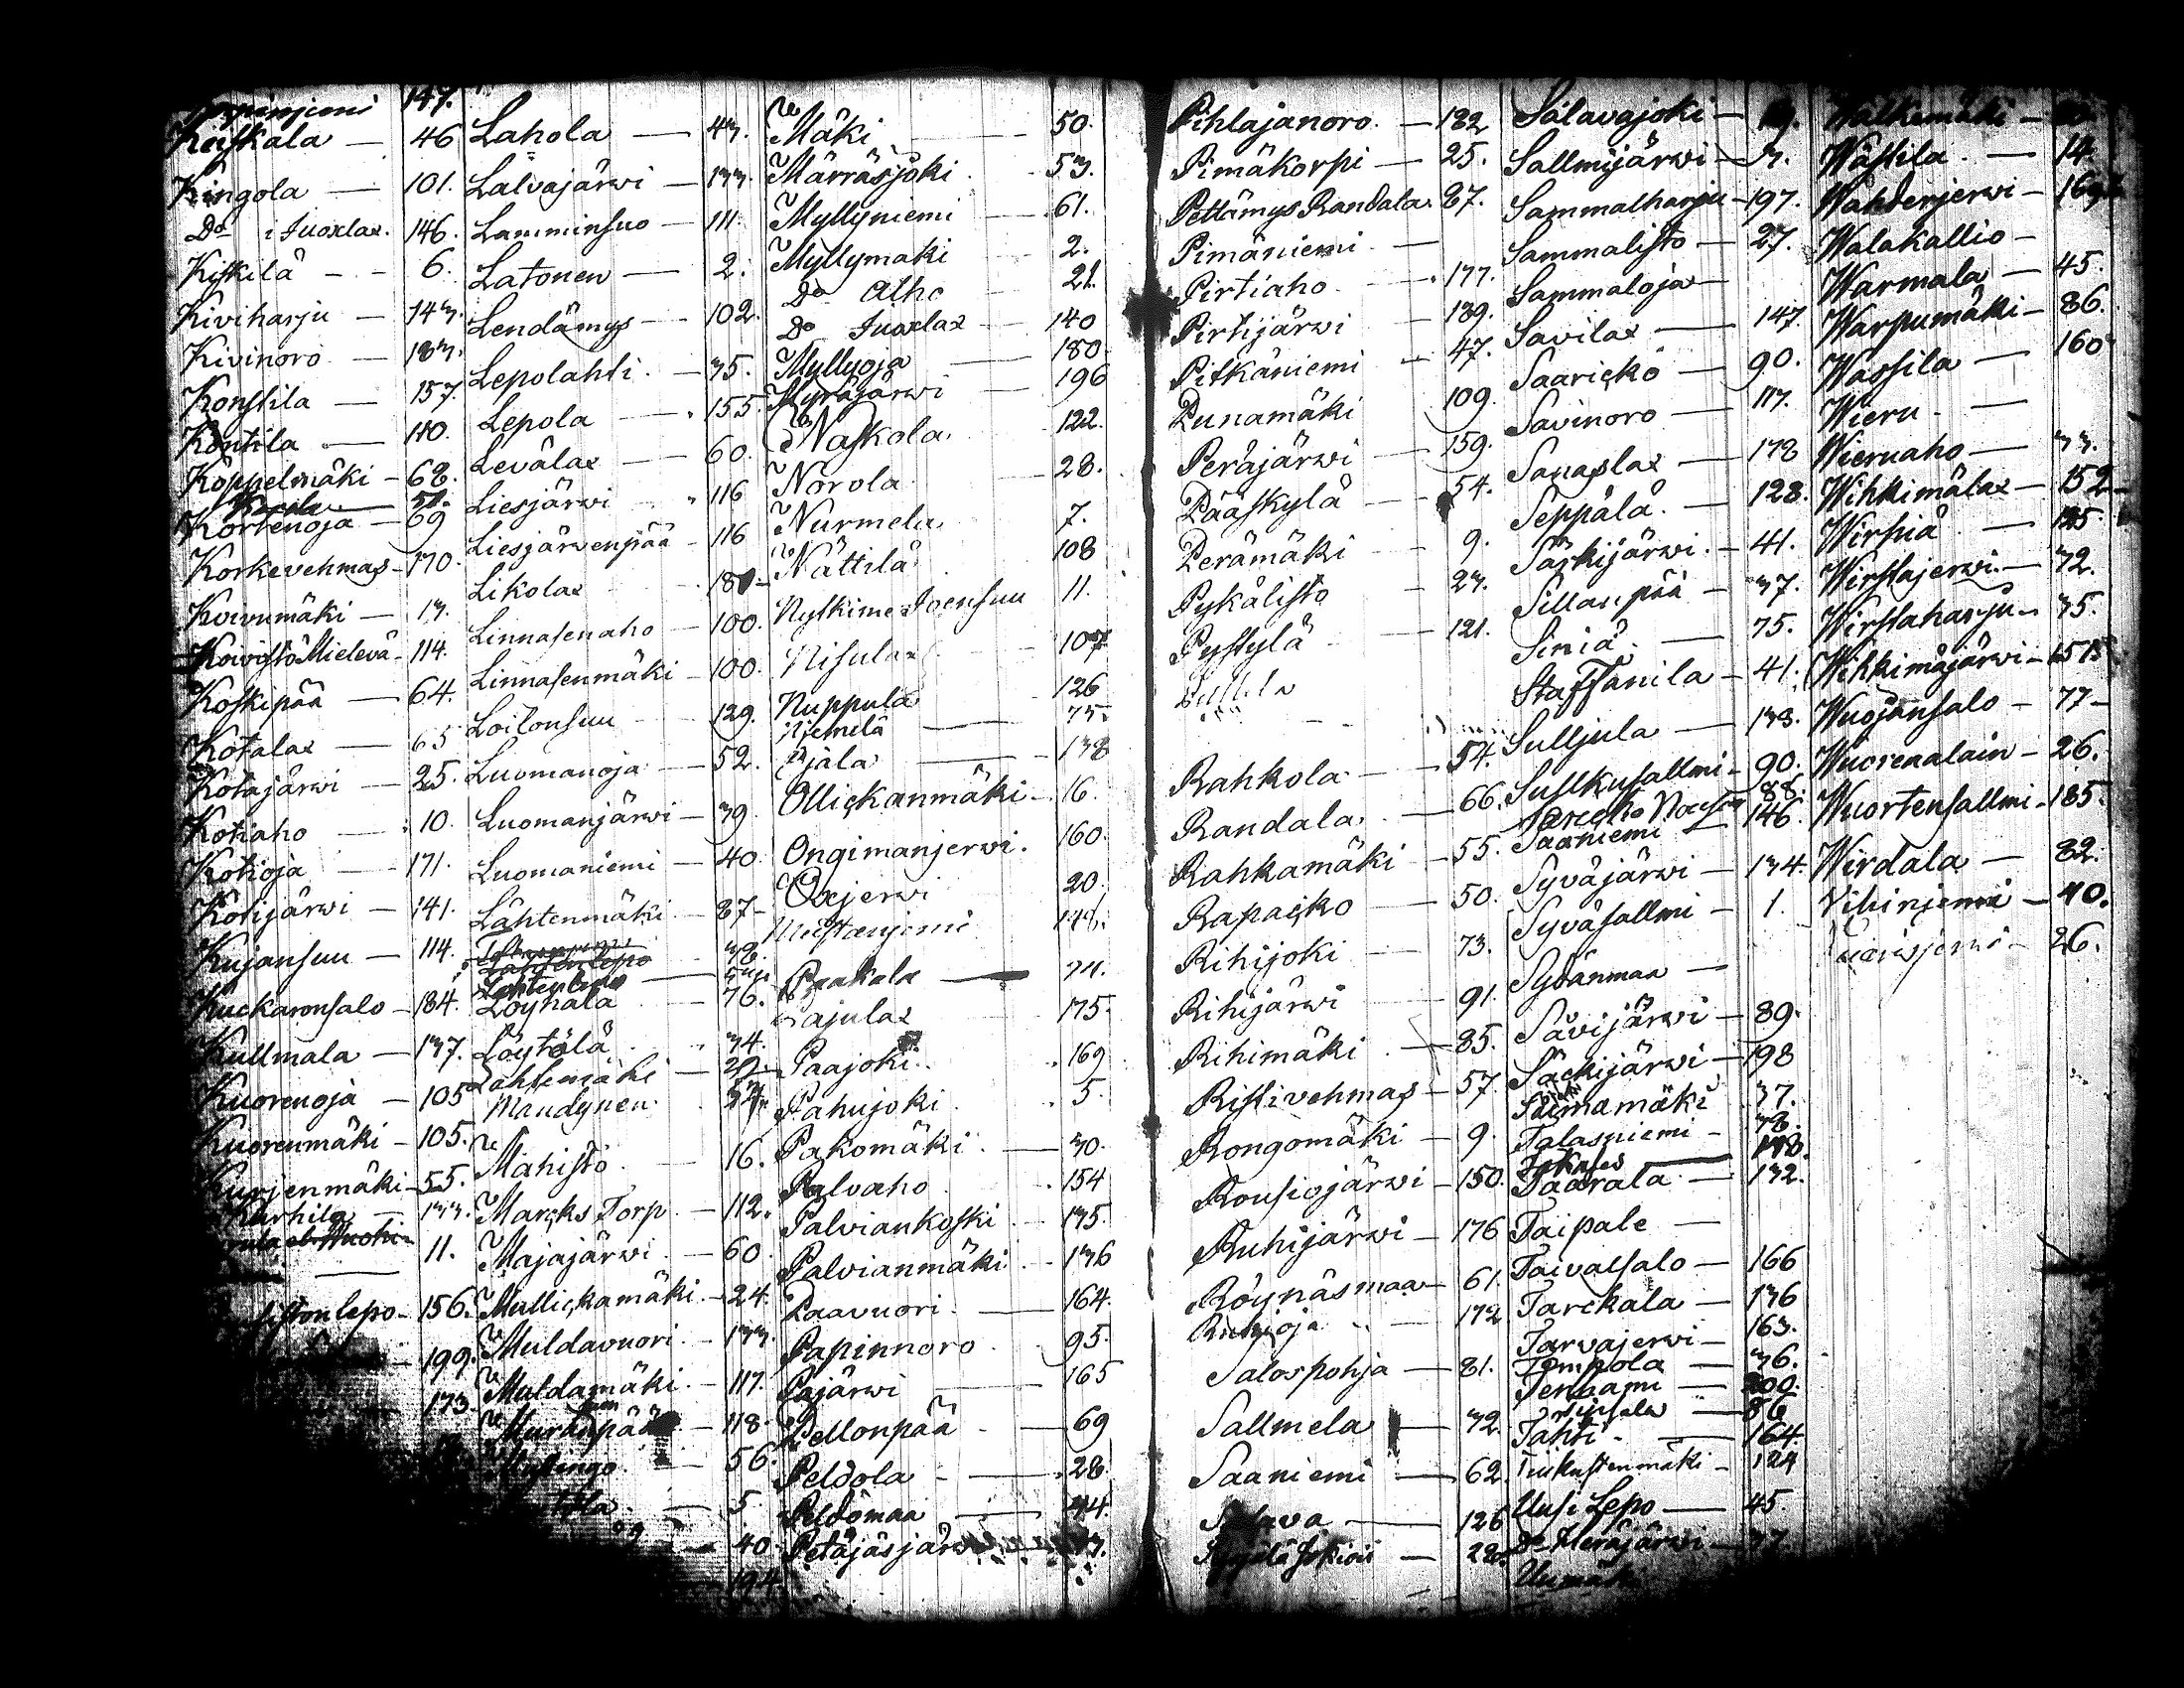 147.
Keiskala — 46
Kingola — 101.
Do i Juoxlax. 146.
Kiskilä — 6.
Kiviharju — 143.
Kivinoro — 183.
Konstila — 157.
Kontila — 110.
Koppelmäki — 68.
Kortenoja — 69
Korkevehmas — 170.
Koivumäki — 13.
Koivisto Mielevä — 114.
Koskipää — 64.
Kotalax — 65
Kotajärwi — 25.
Kotiaho — 10.
Kotioja — 171.
Kotijärwi — 141.
Kujansuu — 114.
Kuckaronsalo — 184.
Kullmala — 137.
Kuorenoja — 105
Kuorenmäki — 105.
Kurjenmäki — 55.
Kurhila — 133.
11.
156.
199.
173.
Lahola — 43.
Lalvajärwi — 133.
Lamminsuo — 111.
Latonen — 2.
Lendämys — 102.
Lepolahti — 35.
Lepola — 155
Levälax — 60.
Liesjärwi — 116
Liesjärwenpää — 116
Likolax
Linnasenaho — 100.
Linnasenmäki — 100.
Loilonsuu — 129.
Luomanoja — 52.
Luomanjärwi — 39
Luomaniemi — 40
Lähtenmäki — 87
Löynälä — 76.
Löytölä — 34.
Lahtemäki
Mandynen
Mahistö — 16.
Marcks Torp — 112.
Majajärwi — 60
Mullickamäki — 24.
Muldavuori — 133.
Muldamäki — 117.
118.
56.
5
40
194.
Mäki — 50.
Märräsjöki — 53.
Myllyniemi — 61.
Myllymäki — 2.
Do Alho — 21.
Do Juoxlax — 140
Myllyoja — 180
Myräjärwi — 196
Naskola — 122.
Norola — 28.
Nurmela — 7.
Nättilä — 108
Nyskime Joensuu 11.
Nisula — 107
Nuppula — 126
Niemelä — 75.
Ojala — 138
Ollickanmäki — 16.
Ongimanjerwi. 160.
Oxjerwi 20.
Paakola
Pajulax 175.
Paajoki 169
Pahujoki 5.
Pakomäki — 30.
Palvaho 154
Palviankoski 135.
Palvianmäki — 136
Paavuori — 164.
Papinnoro 95.
Pajärwi — 165
Pellonpää — 69
Peldola — 28.
Peldomaa — 44.
Petäjäsjärwi
Pihlajanoro — 182
Pimäkorpi — 25.
Pettämys Randala 87.
Pimäniemi —
Pirtiaho 177.
Pirtijärwi — 189.
Pitkäniemi — 47.
Punamäki 109.
Peräjärwi — 159.
Pääskylä — 54.
Perämäki — 9.
Pykälistö — 23.
Pystylä — 121.
Rahkola — 54.
Randala — 66.
Rahkamäki — 55.
Rapacko — 50.
Rihijoki — 73.
Rihijärwi 91.
Rihimäki — 85.
Ristivehmas — 57.
Rongomäki — 9.
Rousiojärwi — 150.
Ruhijärwi — 176
Röynäsmaa — 61.
172
Salospohja — 81.
Sallmela — 32.
Saaniemi — 62.
Salava — 126
Salavajoki —
Sallmijärwi — 3.
Sammalharju — 197.
Sammalisto — 27.
Sammaloja —
Savilax — 147.
Saaricko — 90.
Savinoro — 113.
Sanaslax — 178
Seppälä — 128.
Särkijärwi — 41.
Sillanpää — 37.
Siniä — 75.
Staffanila — 41.
Sulljula — 133.
Sullkusallmi — 90.
88.
Saaniemi — 146.
Syväjärwi — 134.
Syväsallmi — 1.
Sydänmaa —
Sävijärwi — 89.
Säckijärwi — 198
Saimamäki 37.
Talasniemi — 78.
Taarala — 132.
Taipale —
Taivalsalo — 166
Tarckala — 136
Tarvajerwi — 163.
Tempola — 36.
Tenhami — 200.
86
Tähti — 164.
Tuikustenmäki — 124
Uusi Lepo — 45.
Do Heräjärwi — 77
Walkemäki —
Wästila — 14.
Wahderjerwi —
Walakallio —
Warmala — 45.
Warpumäki — 86.
Wassila — 160
Wieru —
Wieruaho — 33.
Wihkimälax — 152
Wirsiä —
Wirstajerwi — 72.
Wirstaharju — 35.
Wihkimäjärwi —
Wuojansalo — 77
Wuorenalain — 26.
Wuortensallmi — 185.
Wirdala — 82.
Vihinjemi — 40.
26.